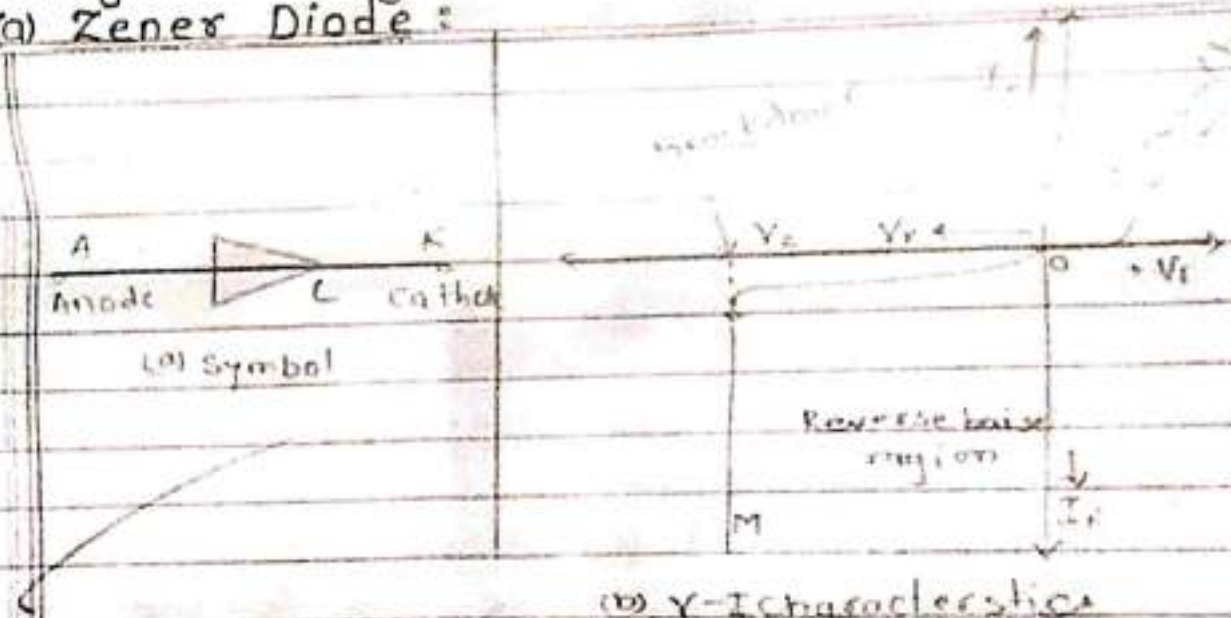 (a) Zener Diode :
A K
Anode
(a) Symbol
Vz Vr
O + Vf
Reverse baise
region
M
Ir
(b) V-I characterstics